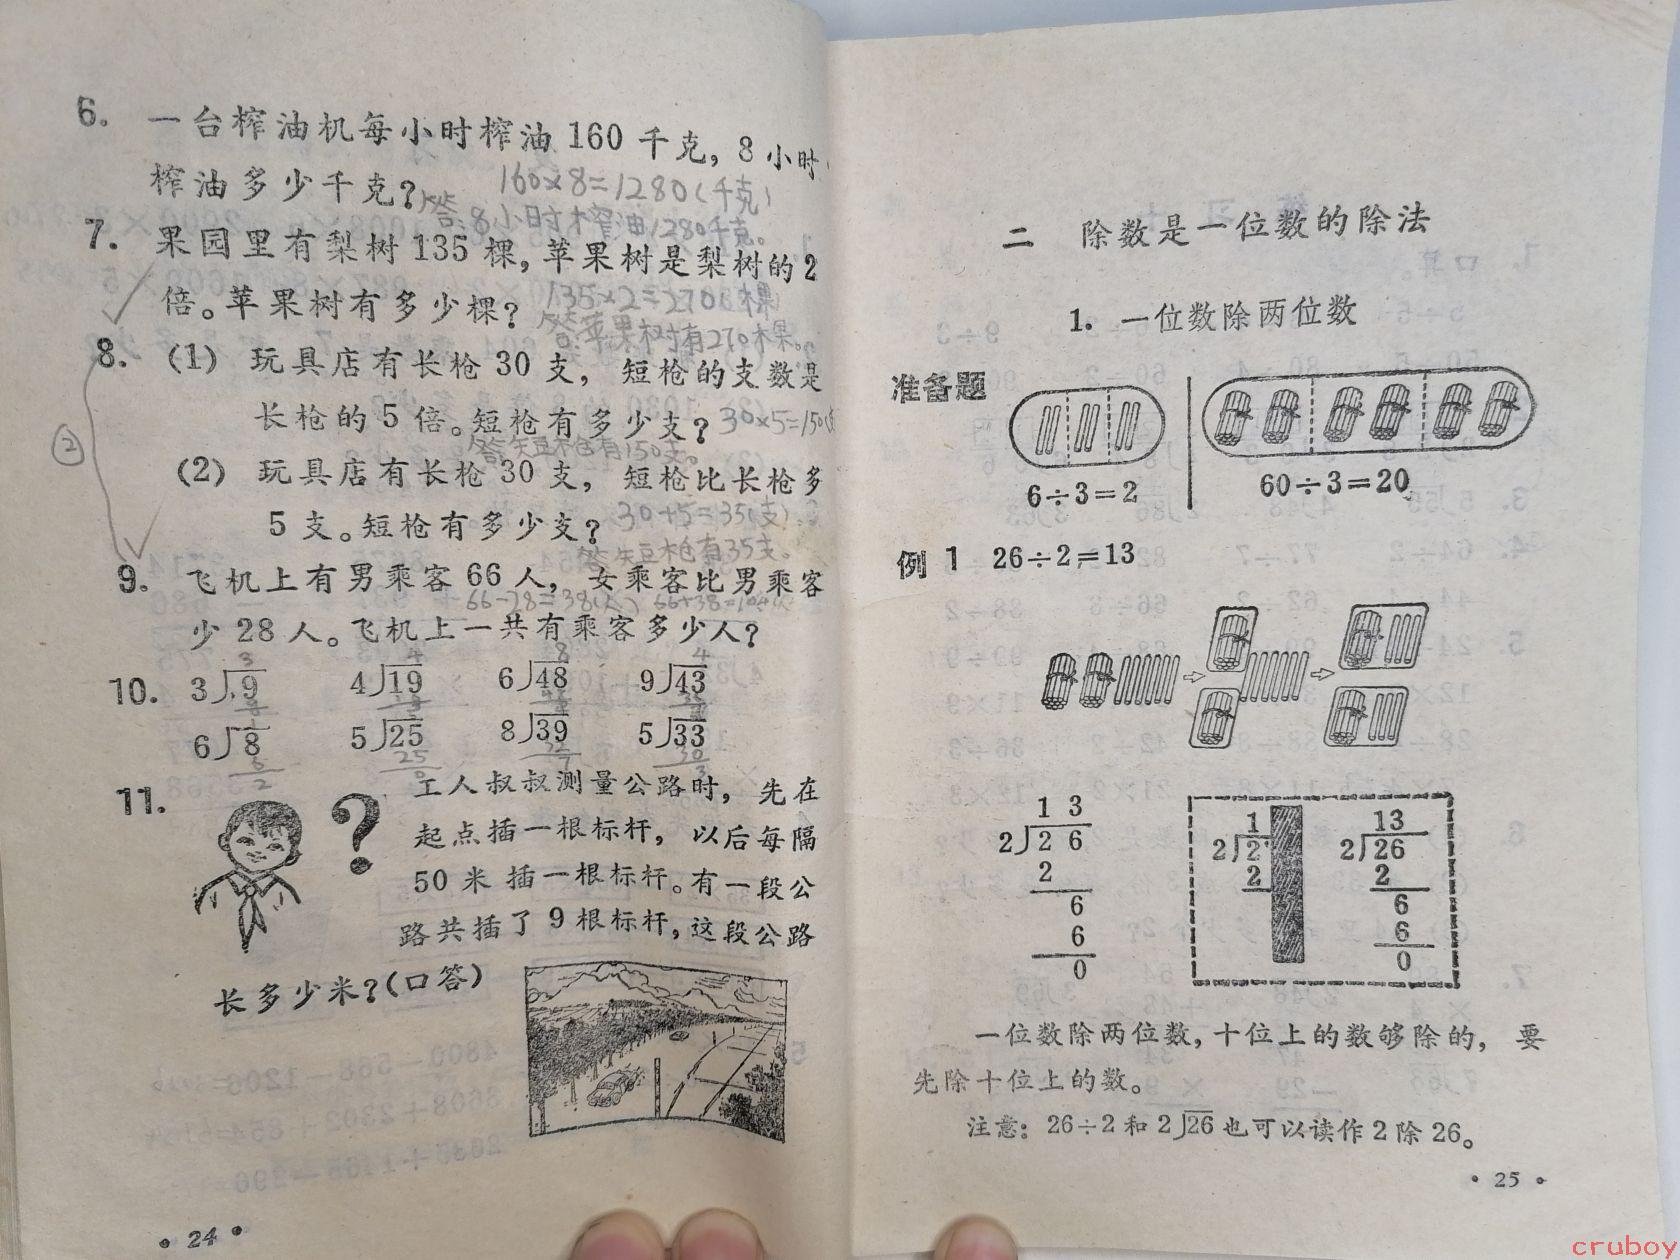 6. 一台榨油机每小时榨油 160 千克，8 小时
榨油多少千克？
160×8=1280(千克)
答:8小时榨油1280千克。
7. 果园里有梨树 135 棵，苹果树是梨树的 2
倍。苹果树有多少棵？
135×2=270(棵
答:苹果树有270棵。
8. (1) 玩具店有长枪 30 支，短枪的支数是
长枪的 5 倍。短枪有多少支？
30×5=150(
答:短枪有150支。
②
(2) 玩具店有长枪 30 支，短枪比长枪多
5 支。短枪有多少支？
30+5=35(支)
答:短枪有35支。
9. 飞机上有男乘客 66 人，女乘客比男乘客
66-28=38(人) 66+38=104
少 28 人。飞机上一共有乘客多少人？
3 4 8 4
10. 3⟌9 4⟌19 6⟌48 9⟌43
6⟌8 5⟌25 8⟌39 5⟌33
6 25 32 30
2 0 7 3
11. ? 工人叔叔测量公路时，先在
起点插一根标杆，以后每隔
50 米插一根标杆。有一段公
路共插了 9 根标杆，这段公路
长多少米？(口答)
• 24 •
二 除数是一位数的除法
1. 一位数除两位数
准备题
6÷3=2
60÷3=20
例 1 26÷2=13
1 3
2⟌2 6
2
6
6
0
1
2⟌2
2
13
2⟌26
2
6
6
0
一位数除两位数，十位上的数够除的，要
先除十位上的数。
注意：26÷2 和 2⟌26 也可以读作 2 除 26。
• 25 •
cruboy